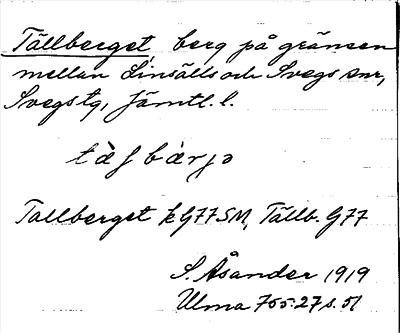 Tällberget, berg på gränsen
mellan Linsälls och Svegs snr,
Svegs tg, Jämtl. l.
tàlbárjə
Tallberget k G77SM, Tällb. G77
S. Åsander 1919
Ulma 755:27 s. 51